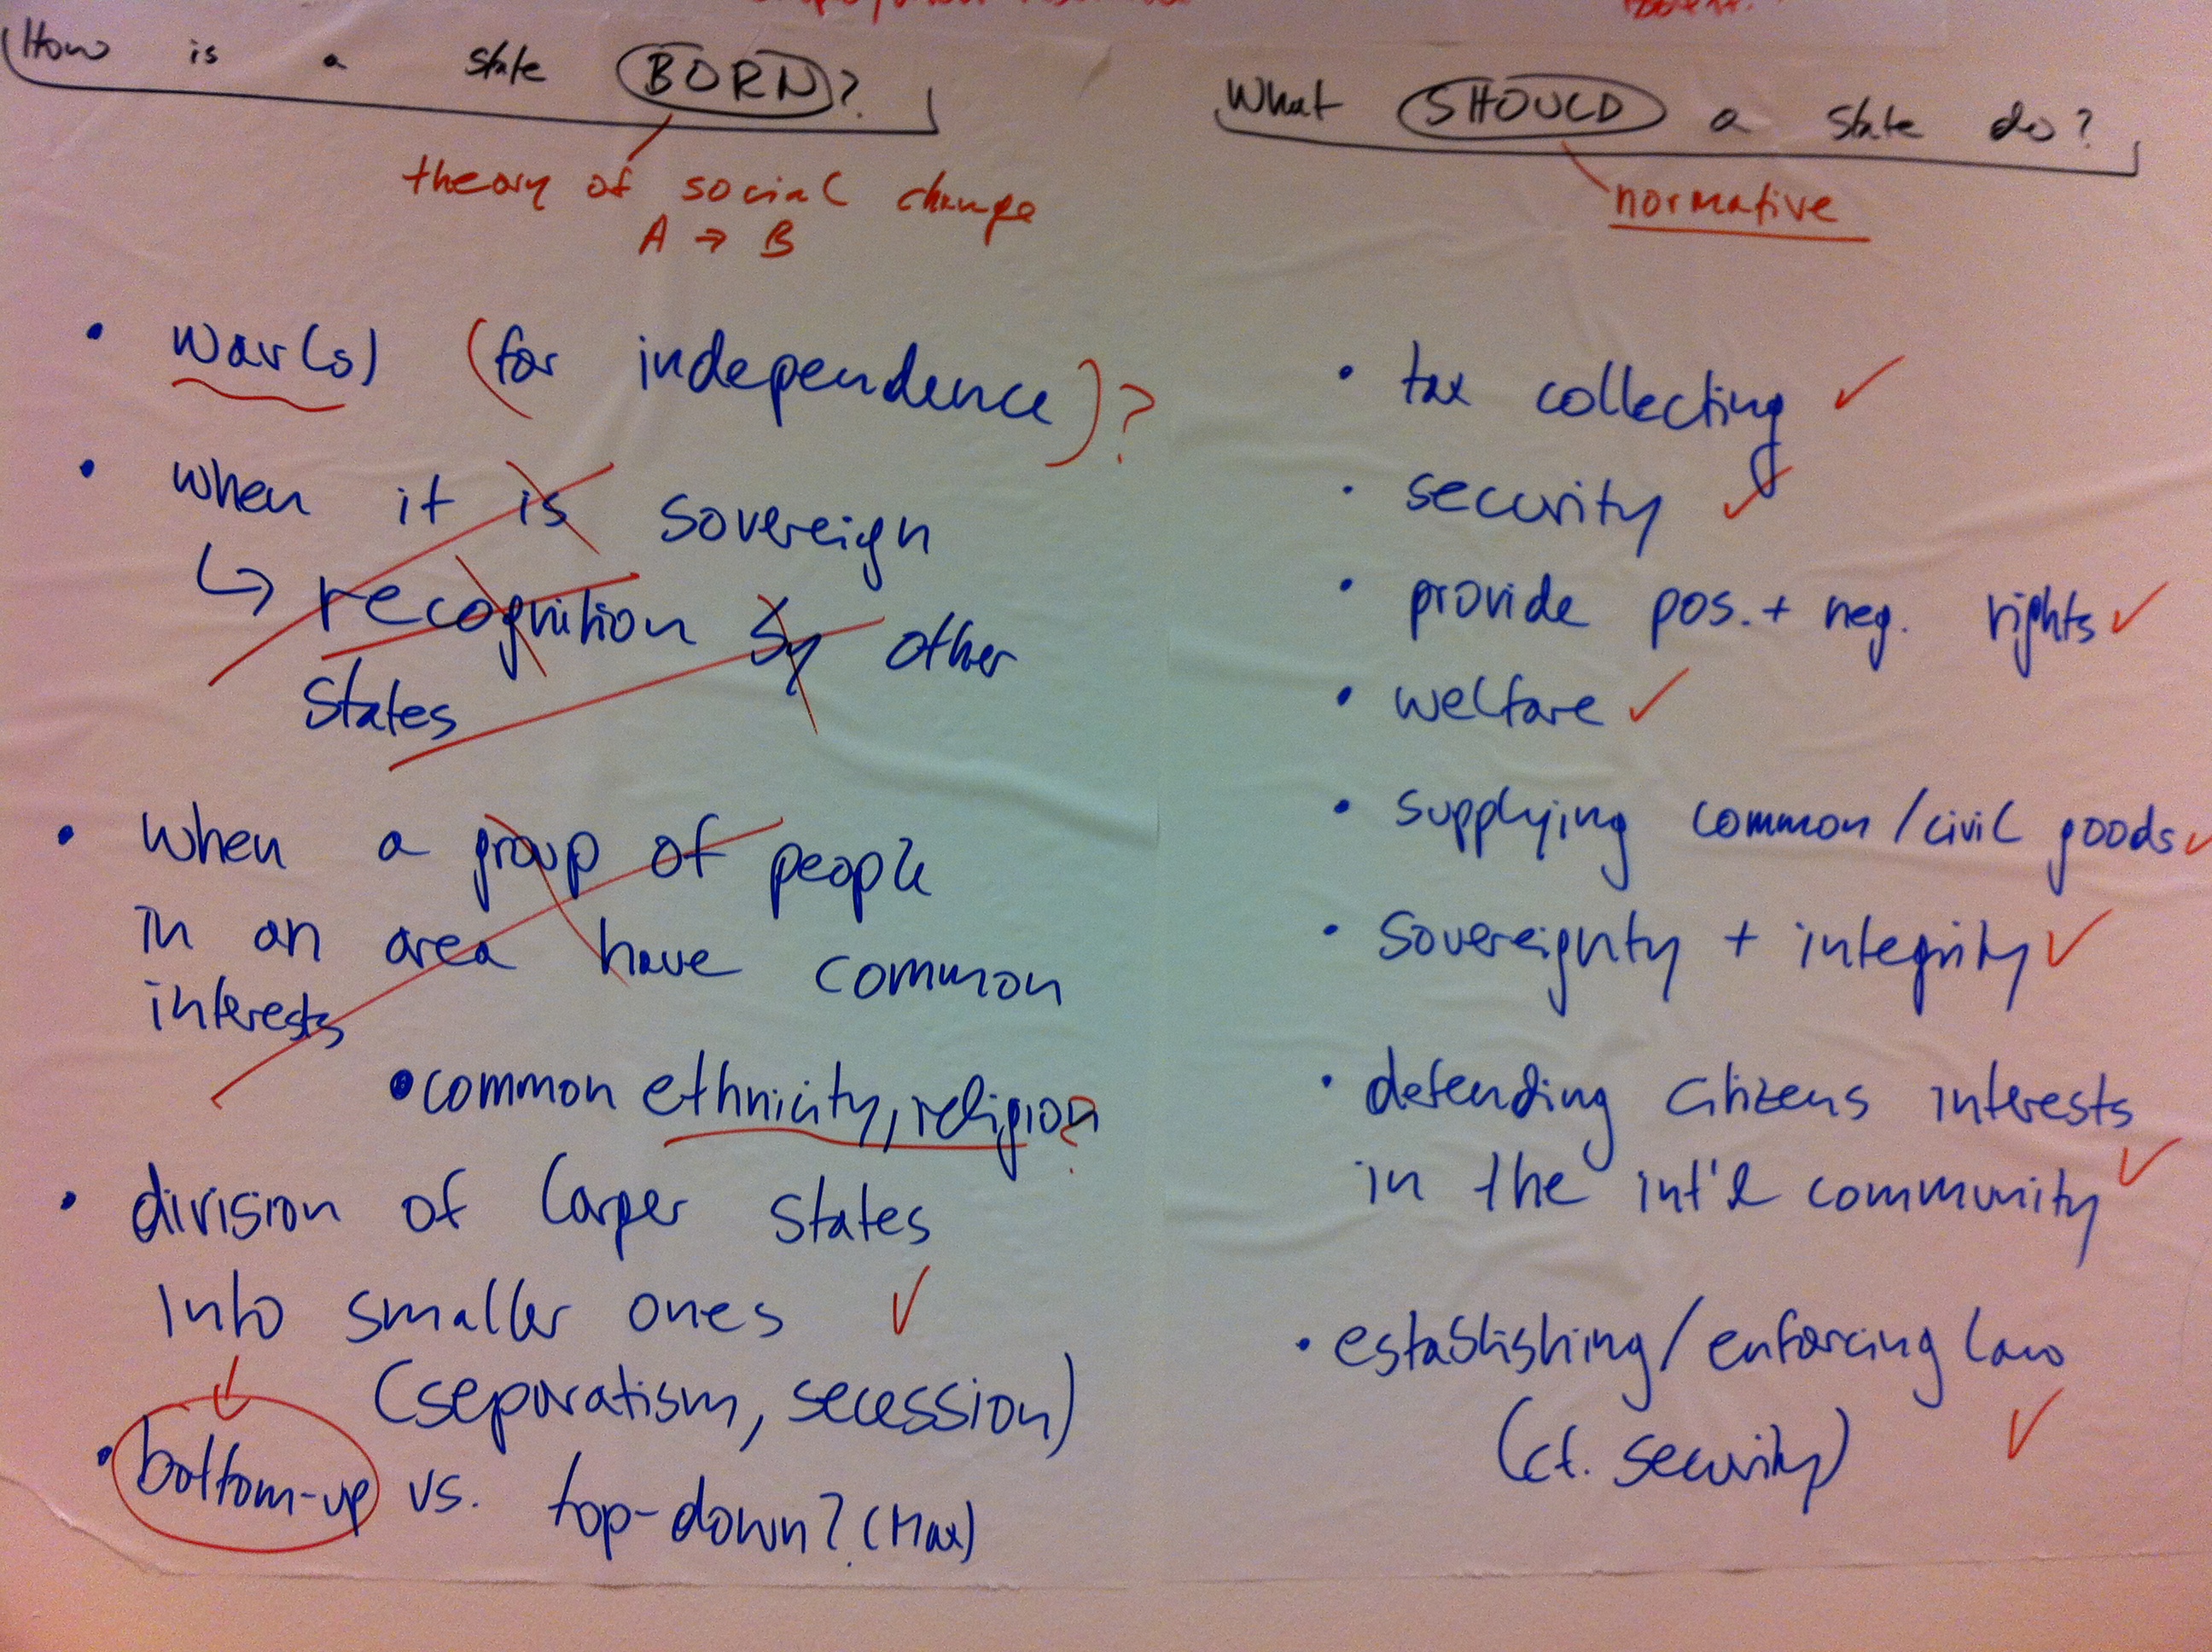 How is a state BORN?
theory of social change
A → B
• war(s) (for independence)?
• when it is sovereign
↳ recognition by other
states
• when a group of people
in an area have common
interests
• common ethnicity, religion?
• division of larger states
into smaller ones ✓
(separatism, secession)
• bottom-up vs. top-down? (Max)
What SHOULD a state do?
normative
• tax collecting ✓
• security ✓
• provide pos. + neg. rights ✓
• welfare ✓
• supplying common/civil goods ✓
• sovereignty + integrity ✓
• defending citizens interests
in the int'l community ✓
• establishing/enforcing law
(cf. security) ✓